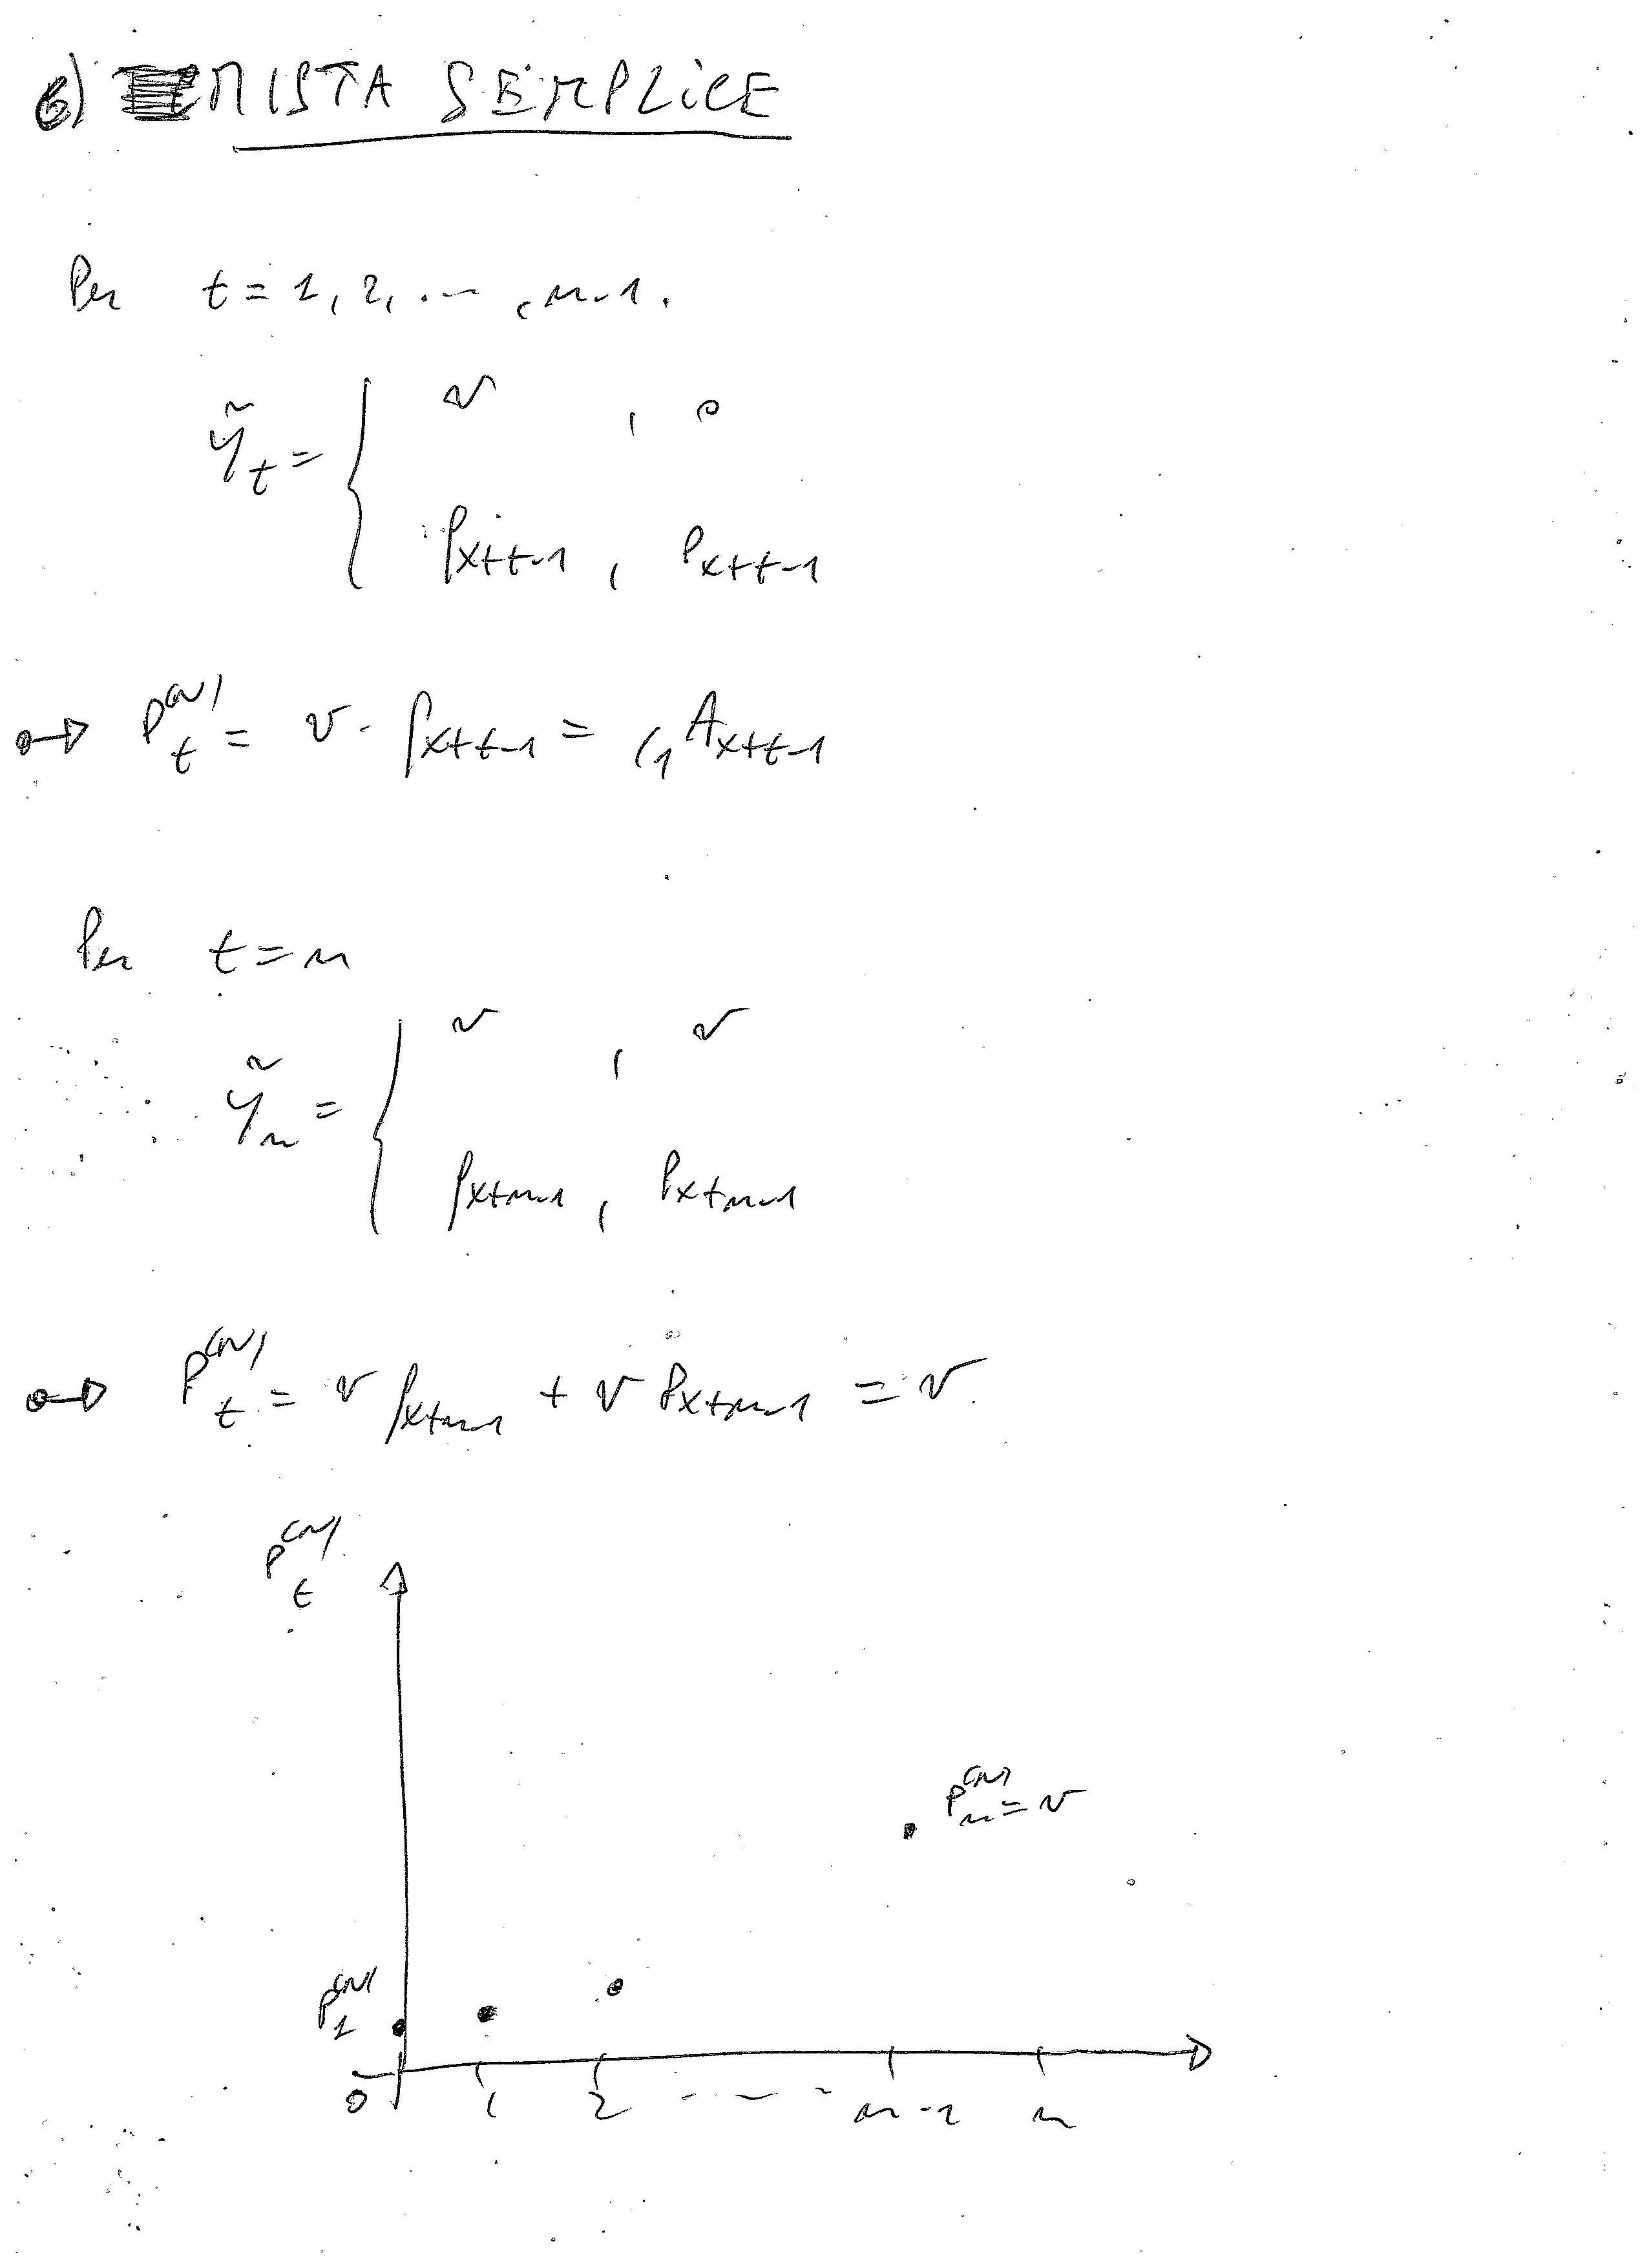 6) MISTA SEMPLICE
Per t = 1, 2, ... , n-1.
ỹ_t = { v , 0
q_{x+t-1} , p_{x+t-1}
→ P_t^{(N)} = v · q_{x+t-1} = _{/1}A_{x+t-1}
Per t = n
ỹ_n = { v , v
q_{x+n-1} , p_{x+n-1}
→ P_t^{(N)} = v q_{x+n-1} + v p_{x+n-1} = v.
P_t^{(N)}
P_n^{(N)} = v
P_1^{(N)}
0 1 2 - - - n-1 n